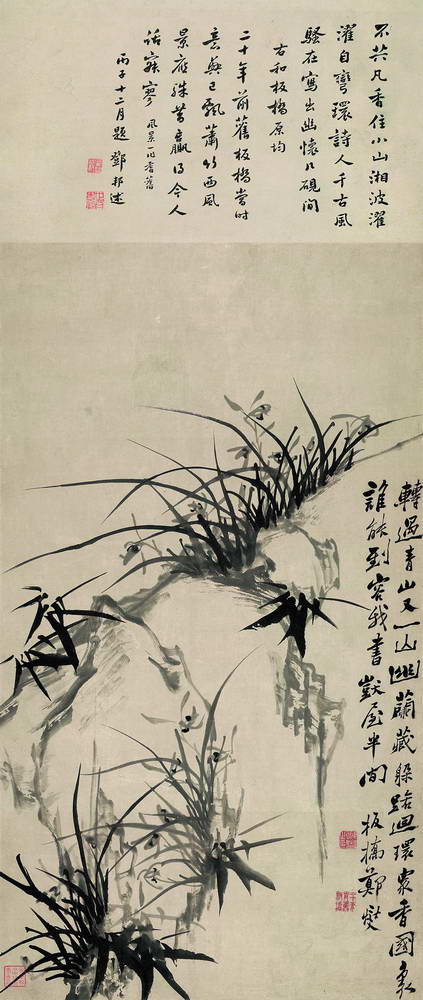 不共凡香住小山湘波濯
濯自彎環詩人千古風
騷在寫出幽懷几硯間
右和板橋原均
二十年前舊板橋當時
意興已飄蕭竹西風
景應殊昔贏得今人
話寂寥 風景一作
丙子十二月題 鄧邦述
轉過青山又一山幽蘭藏躲路迴環衆香國裏
誰能到容我書獃屋半間 板橋鄭燮